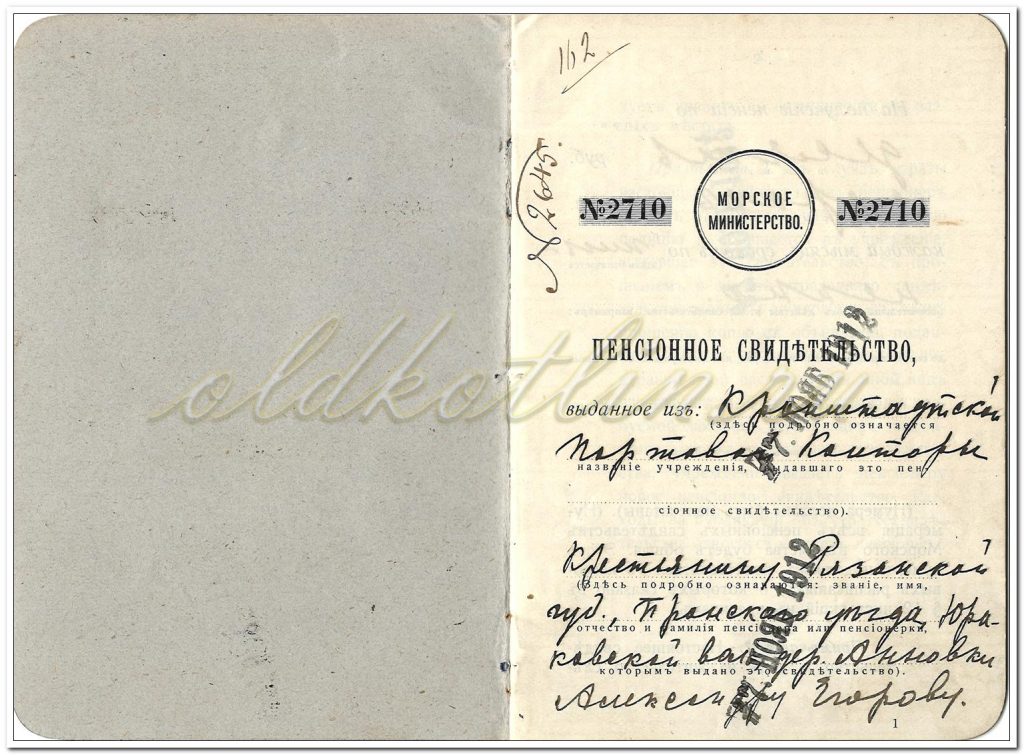 162
N 2645.
№2710
МОРСКОЕ
МИНИСТЕРСТВО.
№2710
ПЕНСІОННОЕ СВИДѢТЕЛЬСТВО,
выданное изъ: Кронштадтской
(здѣсь подробно означается
Портовой Конторы
названіе учрежденія, выдавшаго это пен-
сіонное свидѣтельство).
Крестьянину Рязанской
(Здѣсь подробно означаются: званіе, имя,
губ., Пронскаго уѣзда, Юра-
отчество и фамилія пенсіонера или пенсіонерки,
ковской вол. дер. Анновки
которымъ выдано это свидѣтельство)
Александру Егорову.
27. НОЯБ 1912
НОЯБ 1912
1
oldkotlin.ru